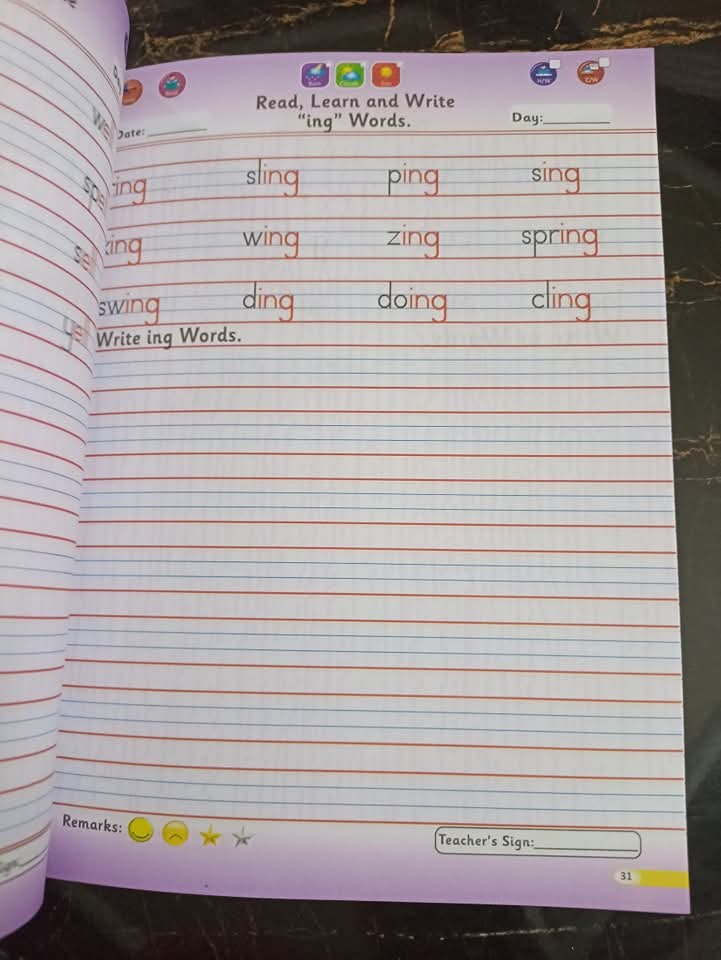 Rain Clouds Sun
H/W C/W
Read, Learn and Write
"ing" Words.
Date:
Day:
ing sling ping sing
king wing zing spring
swing ding doing cling
Write ing Words.
Remarks:
Teacher's Sign:
31